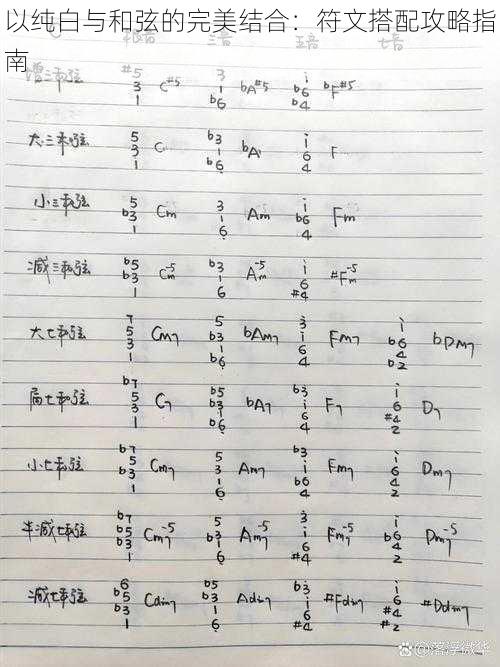 以纯白与和弦的完美结合：符文搭配攻略指
南
根音 三音 五音 七音
增三和弦 #5 3 1 C#5 3 1 b6 bA#5 i b6 b4 bF#5
大三和弦 5 3 1 C b3 1 b6 bA i 6 4 F
小三和弦 5 b3 1 Cm 3 1 6 Am i b6 4 Fm
减三和弦 b5 b3 1 Cm-5 b3 1 6 Am-5 i 6 #4 #Fm-5
大七和弦 7 5 3 1 CM7 5 b3 1 b6 bAM7 3 i 6 4 FM7 i b6 4 b2 bDM7
属七和弦 b7 5 3 1 C7 b5 b3 1 b6 bA7 b3 i 6 4 F7 i 6 #4 2 D7
小七和弦 b7 5 b3 1 Cm7 5 3 1 6 Am7 b3 i b6 4 Fm7 i 6 4 2 Dm7
半减七和弦 b7 b5 b3 1 Cm7-5 5 b3 1 6 Am7-5 3 i 6 #4 Fm7-5 i b6 4 2 Dm7-5
减七和弦 6 b5 b3 1 Cdim7 b5 b3 1 6 Adim7 b3 i 6 #4 #Fdim7 i 6 #4 #2 #Ddim7
@落浮微华